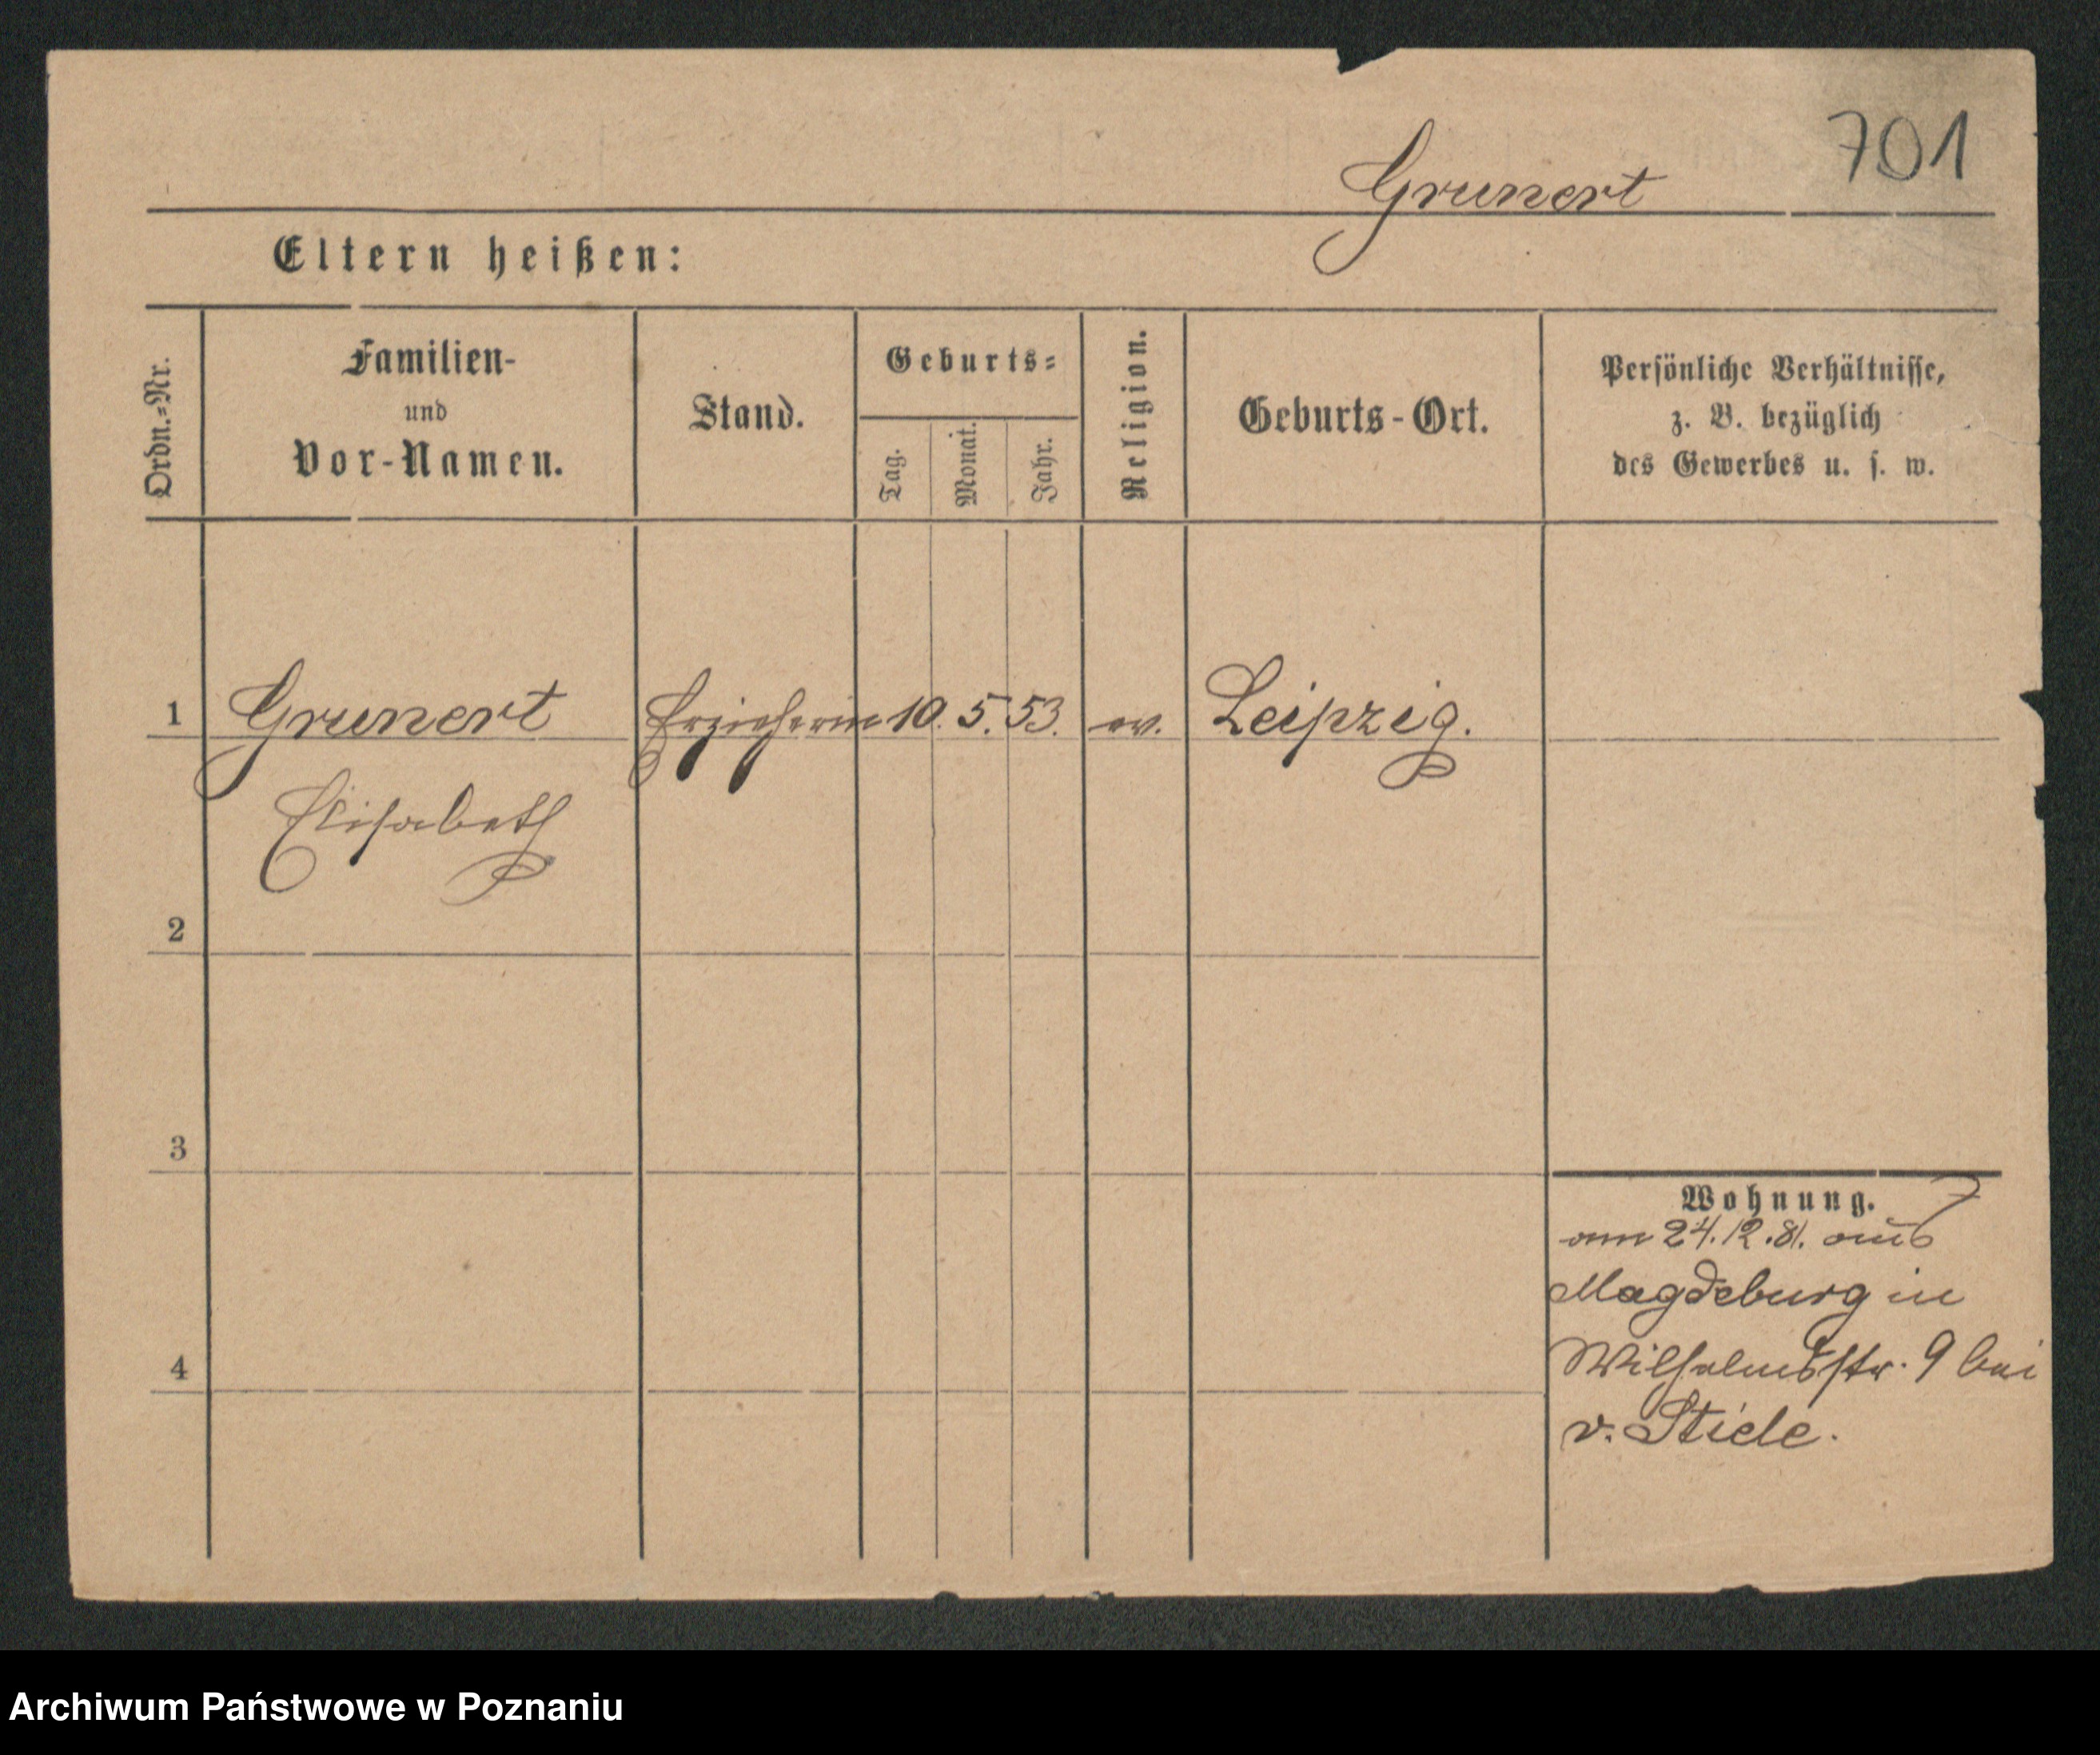 701
Grunert
Eltern heißen:
Ordn.-Nr.
Familien-
und
Vor-Namen.
Stand.
Geburts-
Tag.
Monat.
Jahr.
Religion.
Geburts-Ort.
Persönliche Verhältnisse,
z. B. bezüglich
des Gewerbes u. s. w.
1 Grunert Erzieherin 10. 5. 53. ev. Leipzig.
Elisabeth
2
3
4
Wohnung.
am 24.12.81. aus
Magdeburg in
Wilhelmsstr. 9 bei
v. Stiele.
Archiwum Państwowe w Poznaniu